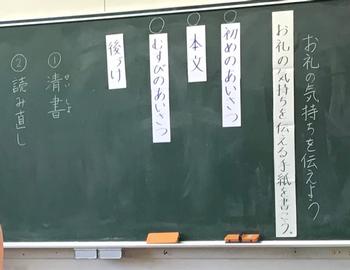 お礼の気持ちを伝えよう
お礼の気持ちを伝える手紙を書こう。
初めのあいさつ
本文
むすびのあいさつ
後づけ
①清書
せいしょ
②読み直し